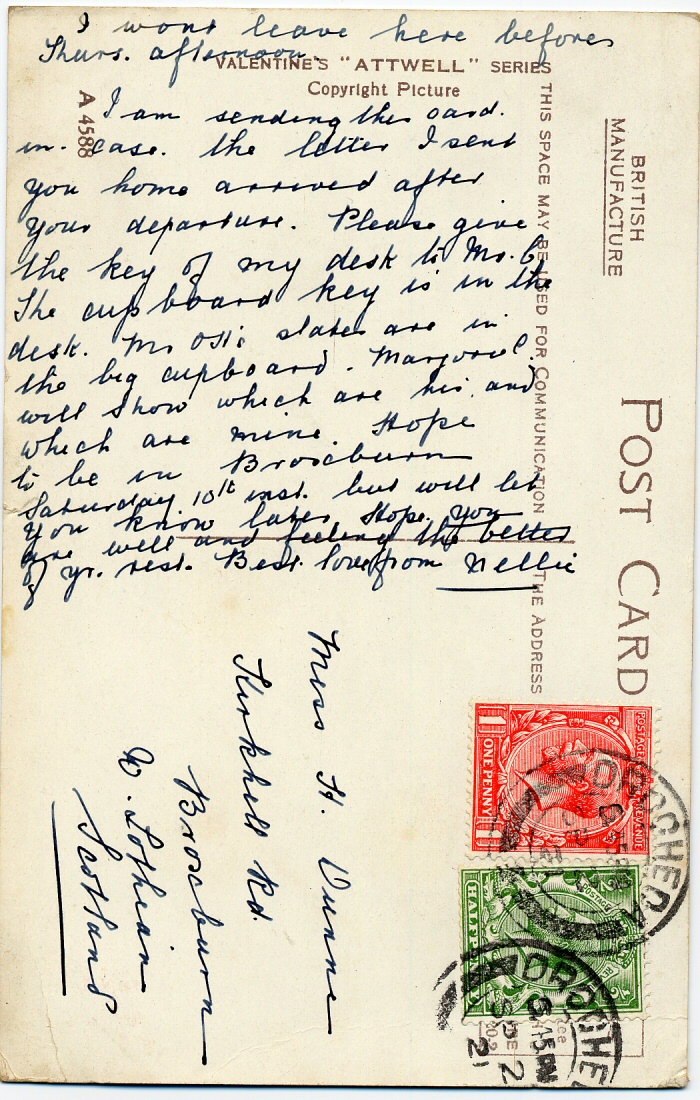 I wont leave here before
Thurs. afternoon.
VALENTINE'S "ATTWELL" SERIES
Copyright Picture
A 4588
I am sending this card.
in. case. the letter I sent
you home arrived after
your departure. Please give
the key of my desk to Mr. C.
The cupboard key is in the
desk. Mr Ott's slates are in
the big cupboard. Marjorie C.
will show which are his and
which are mine. Hope
to be in Broxburn
Saturday 10th inst. but will let
you know later. Hope you
are well and feeling the better
of yr. rest. Best love from Nellie
THIS SPACE MAY BE USED FOR COMMUNICATION
THE ADDRESS
BRITISH
MANUFACTURE
POST CARD
Miss H. Dunne
Kirkhill Rd.
Broxburn
W. Lothian
Scotland
POSTAGE REVENUE
ONE PENNY
DROGHEDA
HALFPENNY
DROGHEDA
6 15 PM
2
21